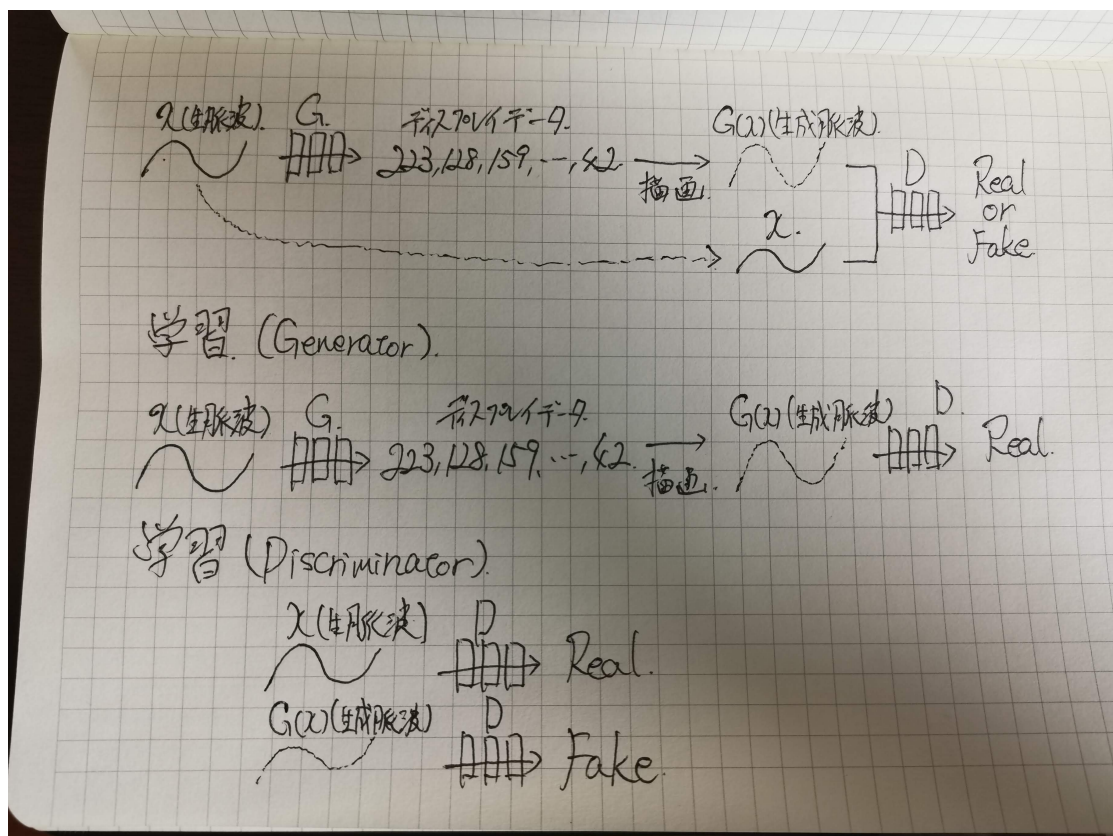 x(生脈波). G. ディスプレイデータ. G(x)(生成脈波).
223,128,159,…,42 描画. D Real
or
Fake
x.
学習. (Generator).
x(生脈波) G. ディスプレイデータ. G(x)(生成脈波) D.
223,128,159,…,42. 描画. Real.
学習 (Discriminator).
x(生脈波) D
Real.
G(x)(生成脈波) D
Fake